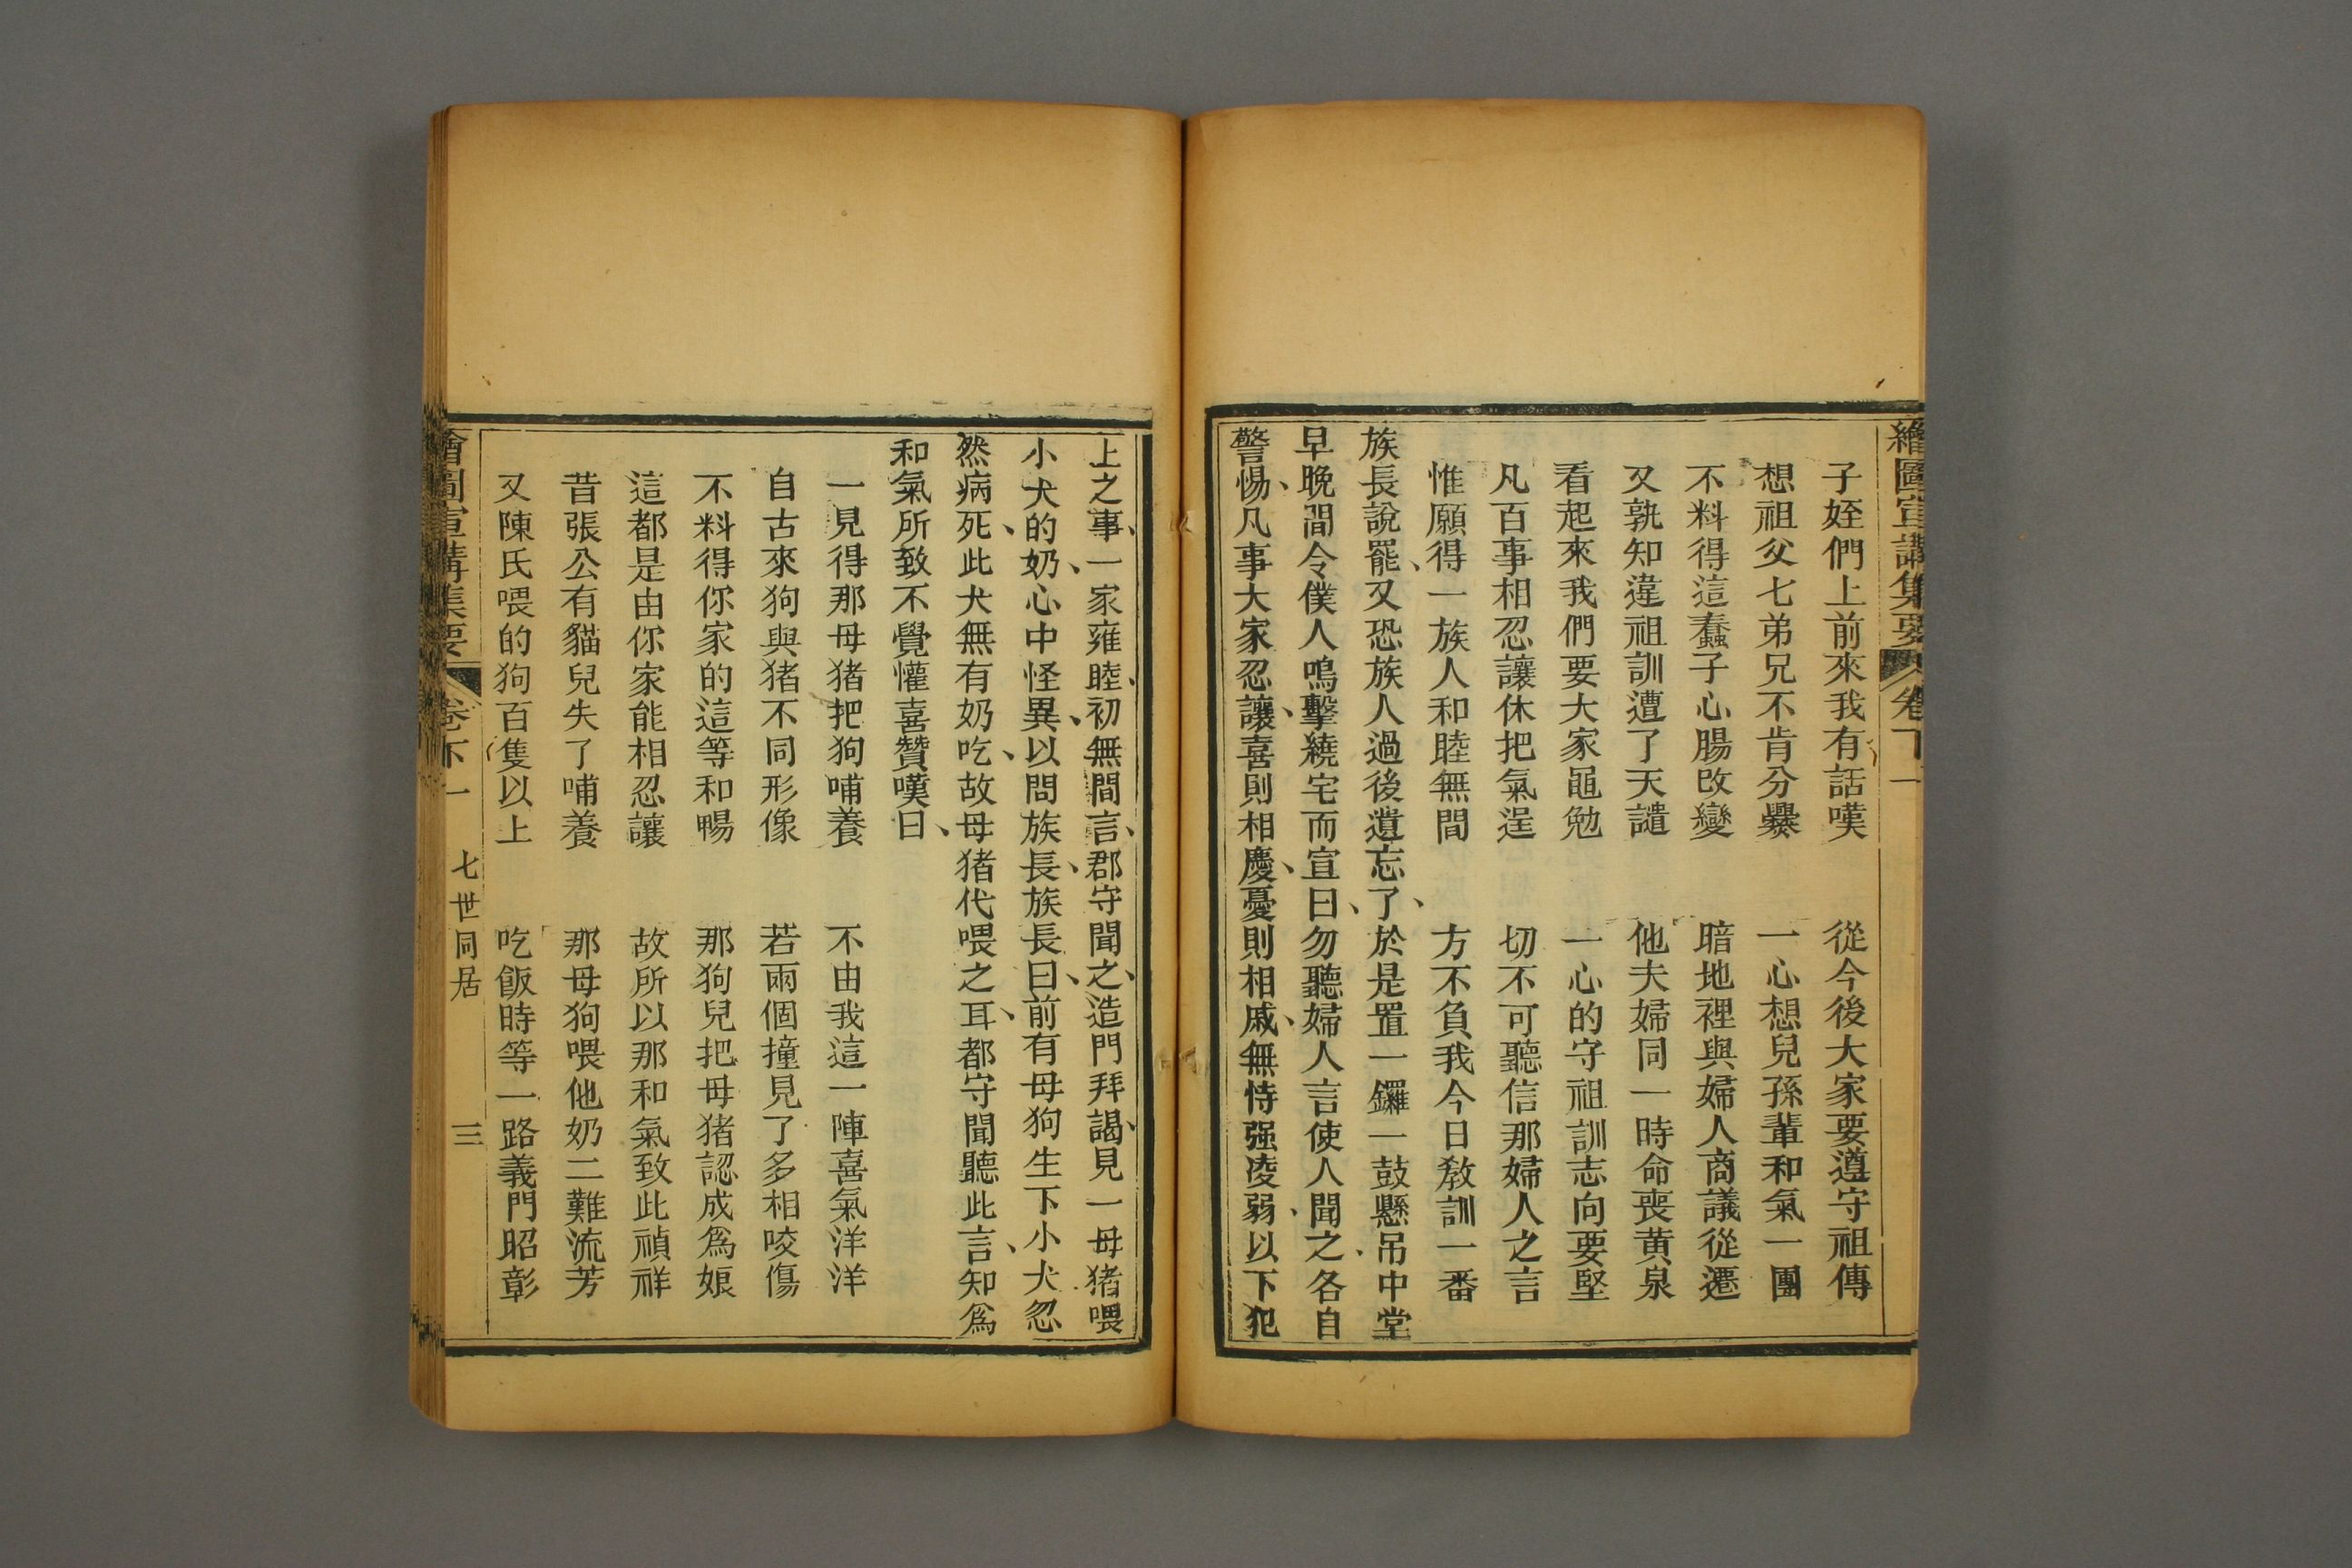 繪圖宣講集要 卷下一
子姪們上前來我有話嘆 從今後大家要遵守祖傳
想祖父七弟兄不肯分爨 一心想兒孫輩和氣一團
不料得這蠢子心腸改變 暗地裡與婦人商議從遷
又孰知違祖訓遭了天譴 他夫婦同一時命喪黄泉
看起來我們要大家黽勉 一心的守祖訓志向要堅
凡百事相忍讓休把氣逞 切不可聽信那婦人之言
惟願得一族人和睦無間 方不負我今日教訓一番
族長說罷、又恐族人過後遺忘了、於是置一鑼一鼓懸吊中堂
早晚間令僕人鳴擊繞宅而宣曰、勿聽婦人言使人聞之、各自
警惕、凡事大家忍讓、喜則相慶、憂則相戚、無恃强凌弱、以下犯
上之事、一家雍睦、初無間言、郡守聞之、造門拜謁、見一母猪喂
小犬的奶、心中怪異、以問族長、族長曰、前有母狗生下小犬忽
然病死、此犬無有奶吃、故母猪代喂之耳、都守聞聽此言、知爲
和氣所致不覺懽喜贊嘆曰、
一見得那母猪把狗哺養 不由我這一陣喜氣洋洋
自古來狗與猪不同形像 若兩個撞見了多相咬傷
不料得你家的這等和暢 那狗兒把母猪認成爲娘
這都是由你家能相忍讓 故所以那和氣致此禎祥
昔張公有貓兒失了哺養 那母狗喂他奶二難流芳
又陳氏喂的狗百隻以上 吃飯時等一路義門昭彰
繪圖宣講集要 卷下一 七世同居 三